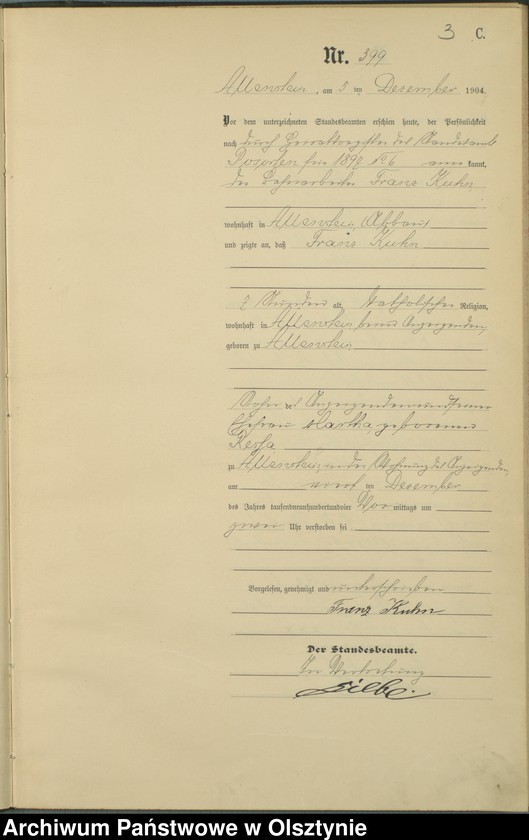 3 C.
Nr. 399
Allenstein, am 5 ten Dezember 1904
Vor dem unterzeichneten Standesbeamten erschien heute, der Persönlichkeit
nach durch des Standesamts
für 189 No 6 anerkannt,
der Franz Kuhn
wohnhaft in Allenstein, Abbau
und zeigte an, daß Franz Kuhn
2 Stunden alt, katholischer Religion,
wohnhaft in Allenstein beim Anzeigenden,
geboren zu Allenstein
Sohn des Anzeigenden und seiner
Ehefrau Martha, geborenen
zu Allenstein, in der Wohnung des Anzeigenden,
am ten Dezember
des Jahres tausendneunhundertundvier Vor mittags um
zwei Uhr verstorben sei
Vorgelesen, genehmigt und unterschrieben
Franz Kuhn
Der Standesbeamte.
In Vertretung
Archiwum Państwowe w Olsztynie